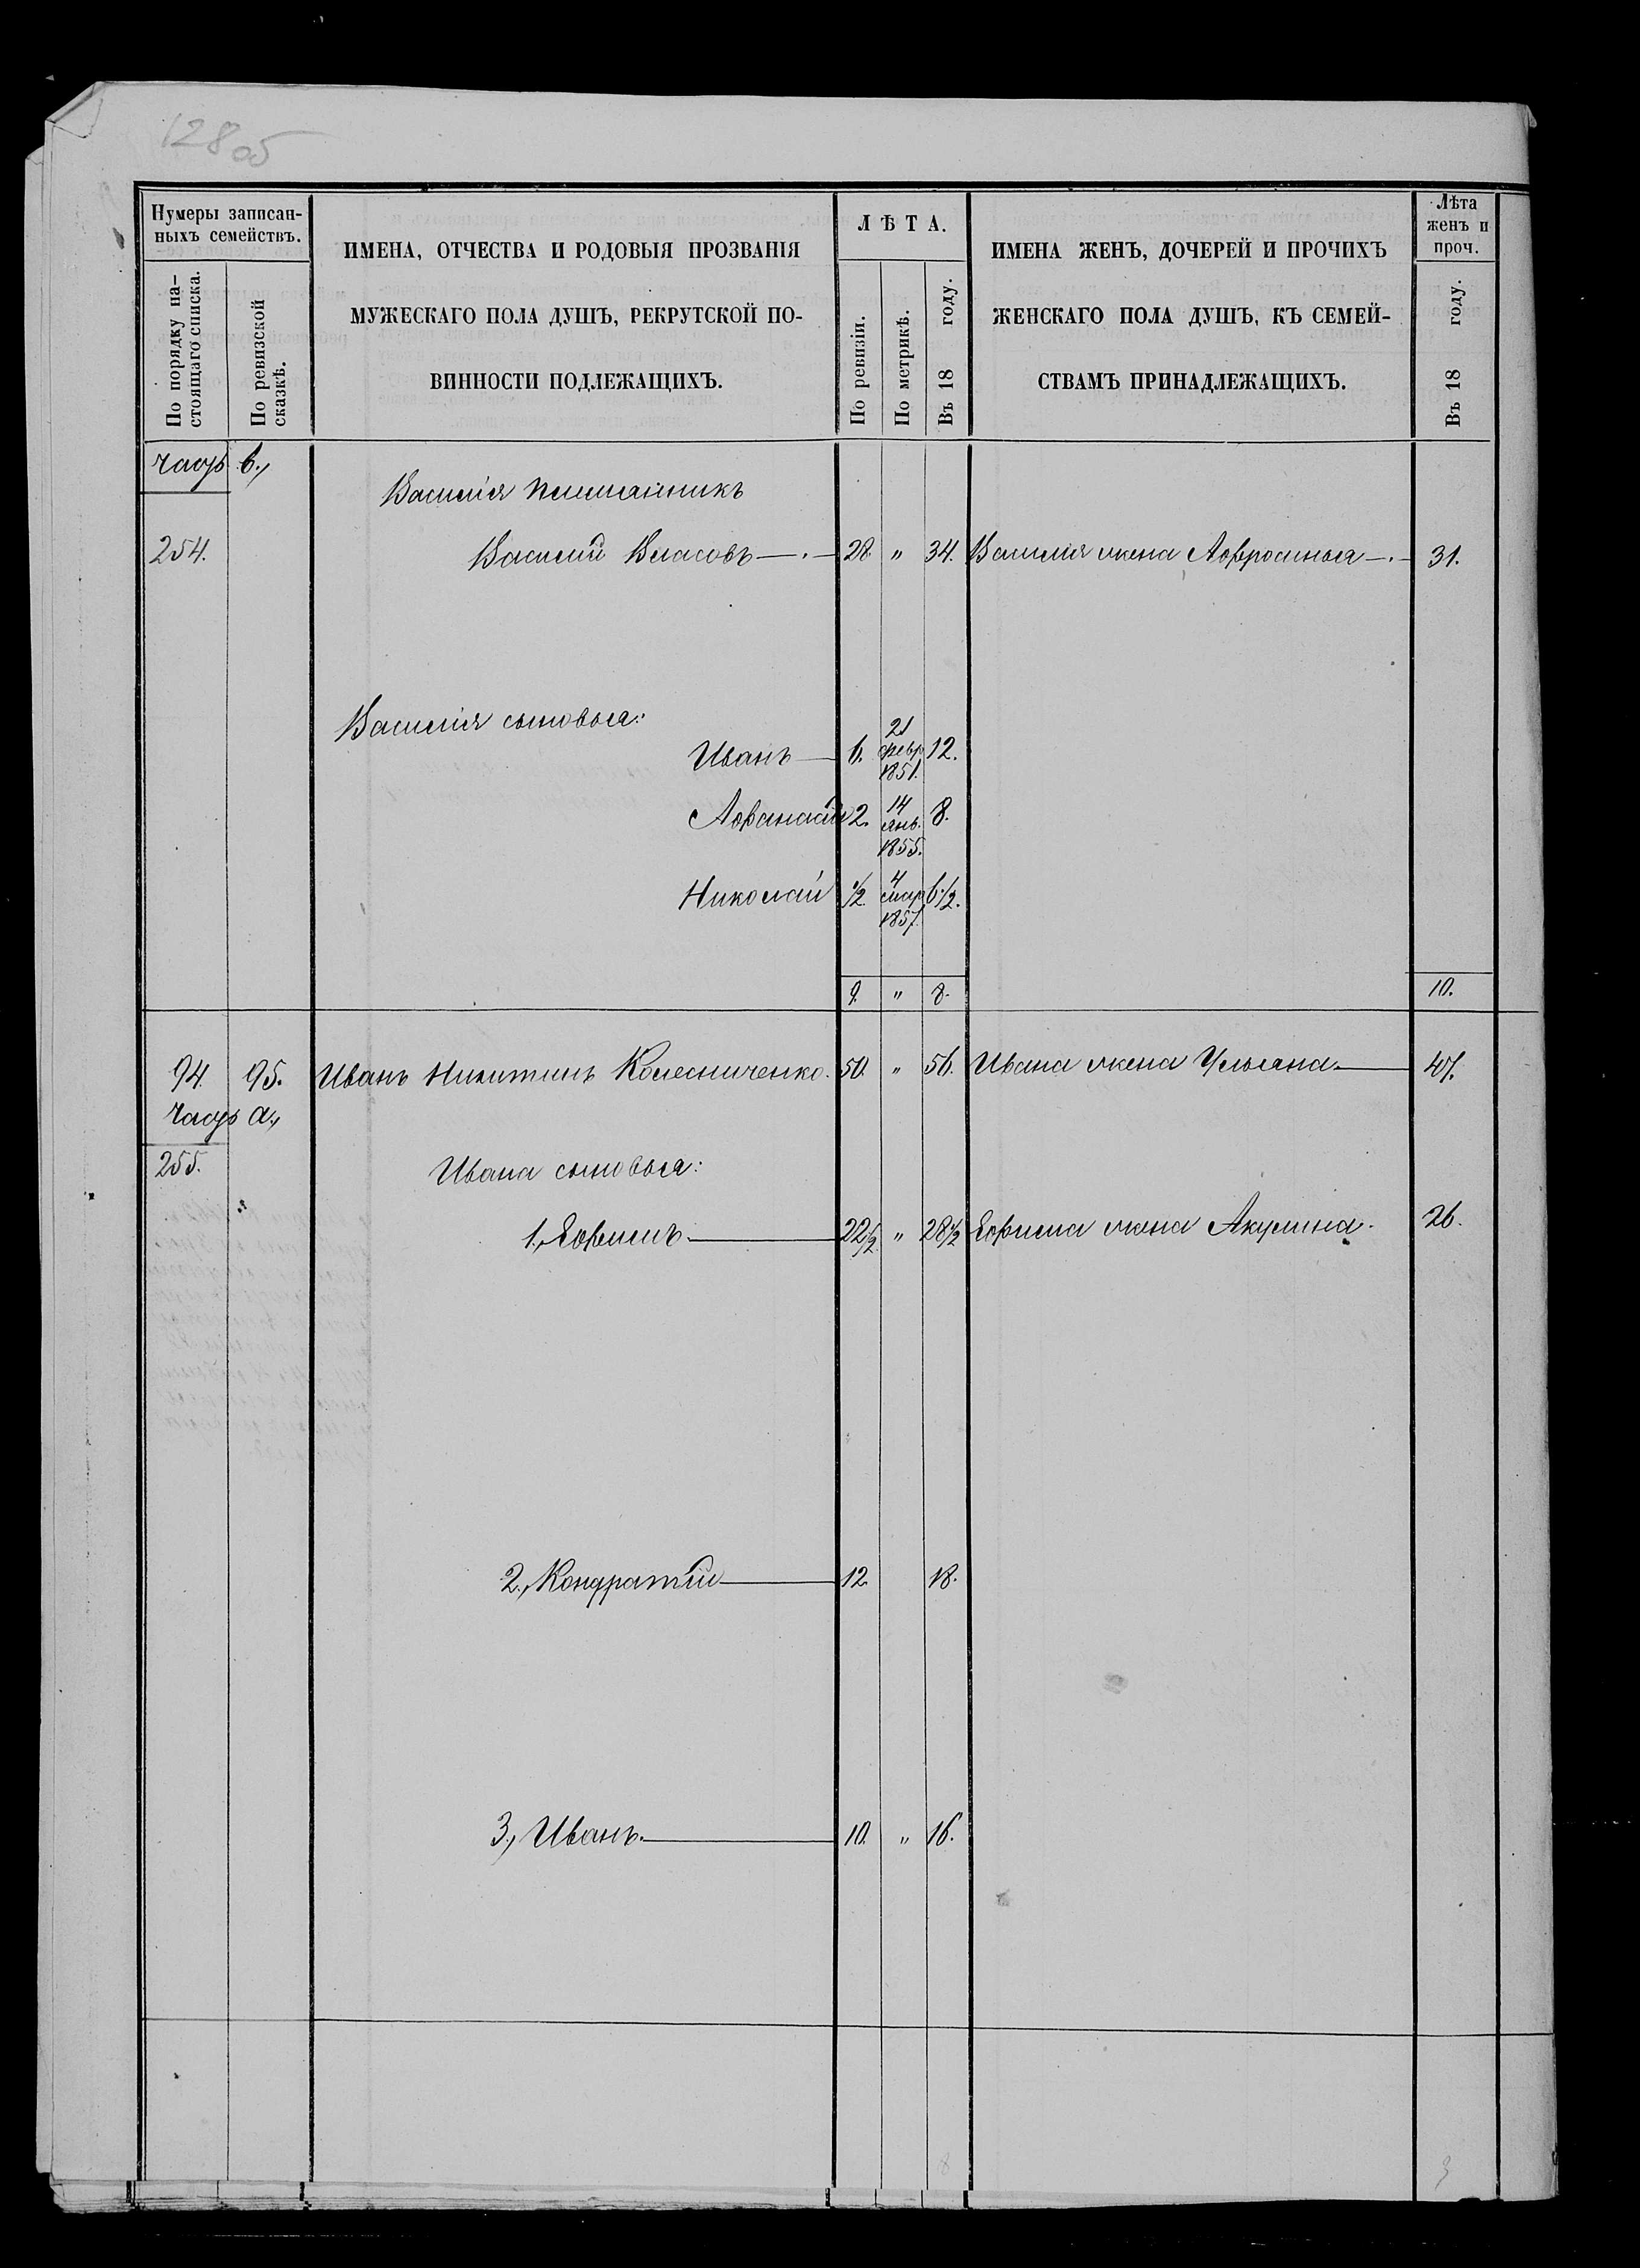 128 об
Нумеры записан-
ныхъ семействъ.
По порядку на-
стоящаго списка.
По ревизской
сказкѣ.
ИМЕНА, ОТЧЕСТВА И РОДОВЫЯ ПРОЗВАНІЯ
МУЖЕСКАГО ПОЛА ДУШЪ, РЕКРУТСКОЙ ПО-
ВИННОСТИ ПОДЛЕЖАЩИХЪ.
ЛѢТА.
По ревизіи.
По метрикѣ.
Въ 18 году.
ИМЕНА ЖЕНЪ, ДОЧЕРЕЙ И ПРОЧИХЪ
ЖЕНСКАГО ПОЛА ДУШЪ, КЪ СЕМЕЙ-
СТВАМЪ ПРИНАДЛЕЖАЩИХЪ.
Лѣта
женъ и
проч.
Въ 18 году.
часть в.,
Василія племянникъ
254. Василій Власовъ 28. " 34. Василія жена Афросинья 31.
Василія сыновья:
Иванъ 6. 21 февр 1851. 12.
Афанасій 2. 14 янв. 1855. 8.
Николай 1/2. 4 мар 1857. 6 1/2.
9. " 8. 10.
94. 95. Иванъ Никитинъ Колесниченко. 50. " 56. Ивана жена Ульяна 47.
часть а.,
255. Ивана сыновья:
1., Ефимъ 22 1/2. " 28 1/2 Ефима жена Акулина. 26.
2., Кондратій 12. 18.
3., Иванъ. 10. " 16.
8 3